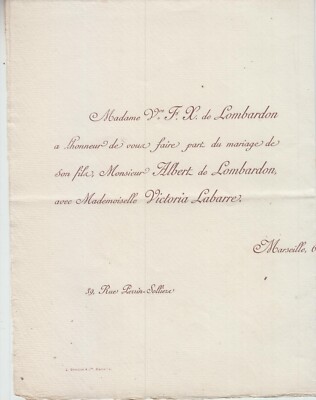 Madame Vve F. X. de Lombardon
a l'honneur de vous faire part du mariage de
son fils, Monsieur Albert de Lombardon,
avec Mademoiselle Victoria Labarre.
Marseille, 6
59, Rue